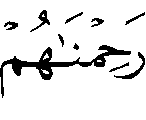 رَحِمْنَٰهُمْ